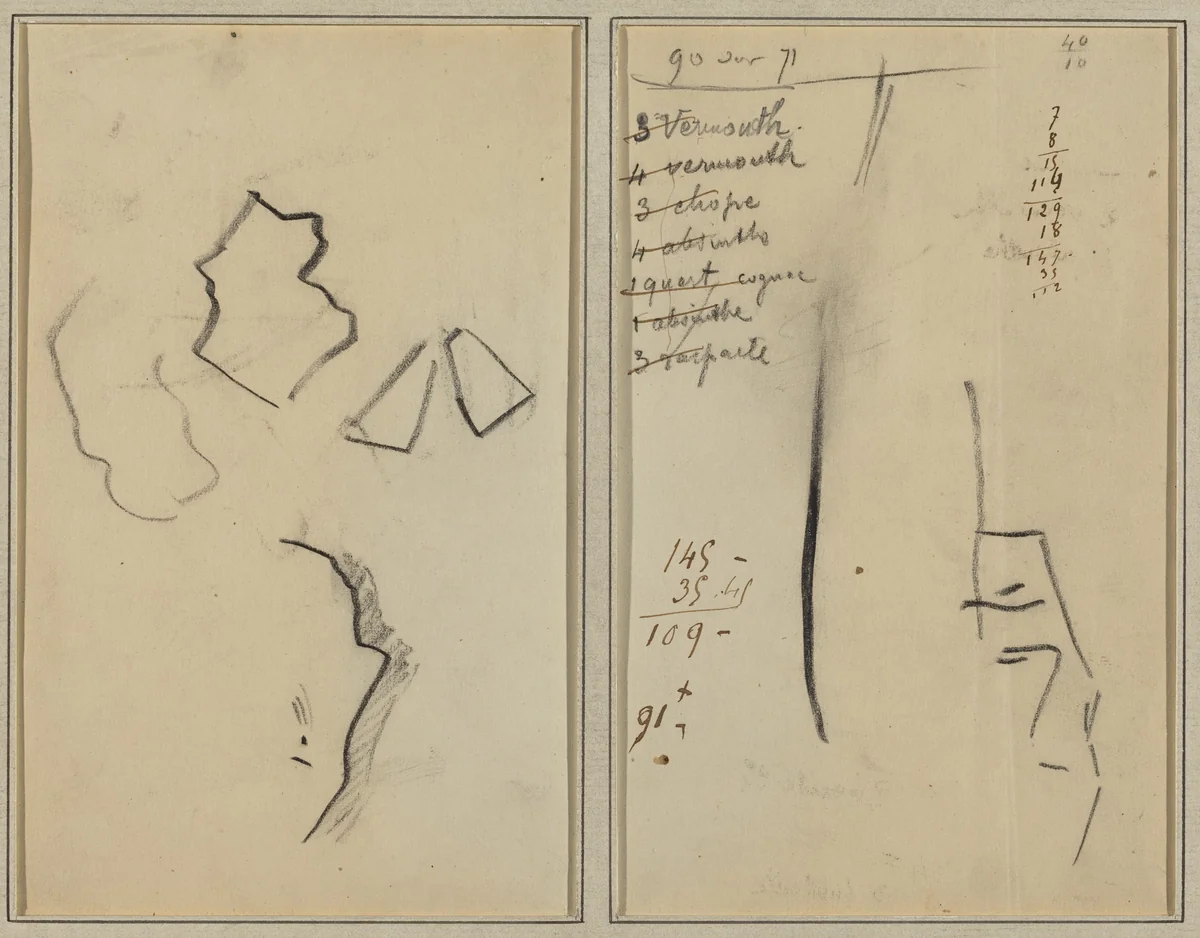 90 sur 71
3 Vermouth.
4 vermouth
3 chope
4 absinthe
1 quart cognac
1 absinthe
3
40
10
7
8
15
114
129
18
147
35
112
145 -
35.45
109 -
91